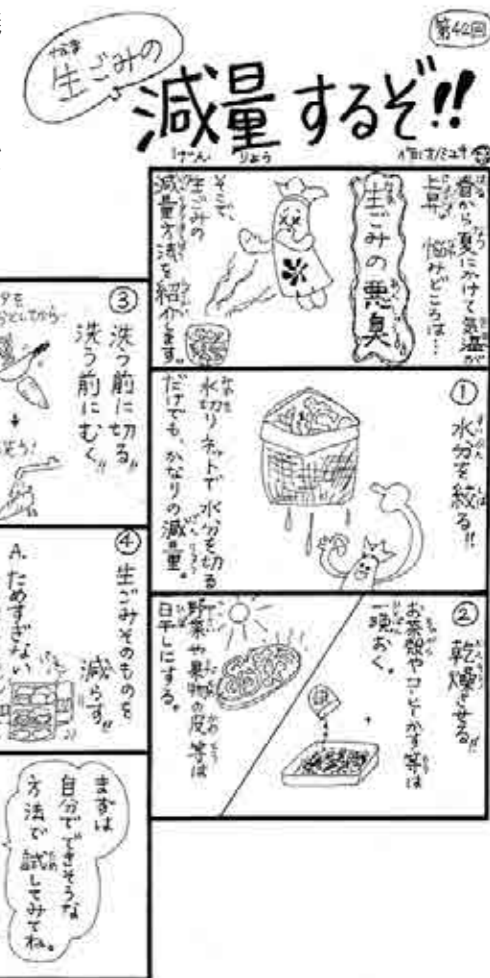 第42回
生ごみの
減量するぞ!!
春から夏にかけて気温が
上昇。悩みどころは…
生ごみの悪臭
そこで、
生ごみの
減量方法を紹介します。
① 水分を絞る!!
水切りネットで水分を切る
だけでも、かなりの減量。
② 乾燥させる!!
お茶殻やコーヒーかす等は
一晩おく。
野菜や果物の皮等は
日干しにする。
③ 洗う前に切る!!
洗う前にむく!!
としてから
洗う!
④ 生ごみそのものを
減らす!!
A. ためすぎない
まずは
自分でできそうな
方法で試してみてね。